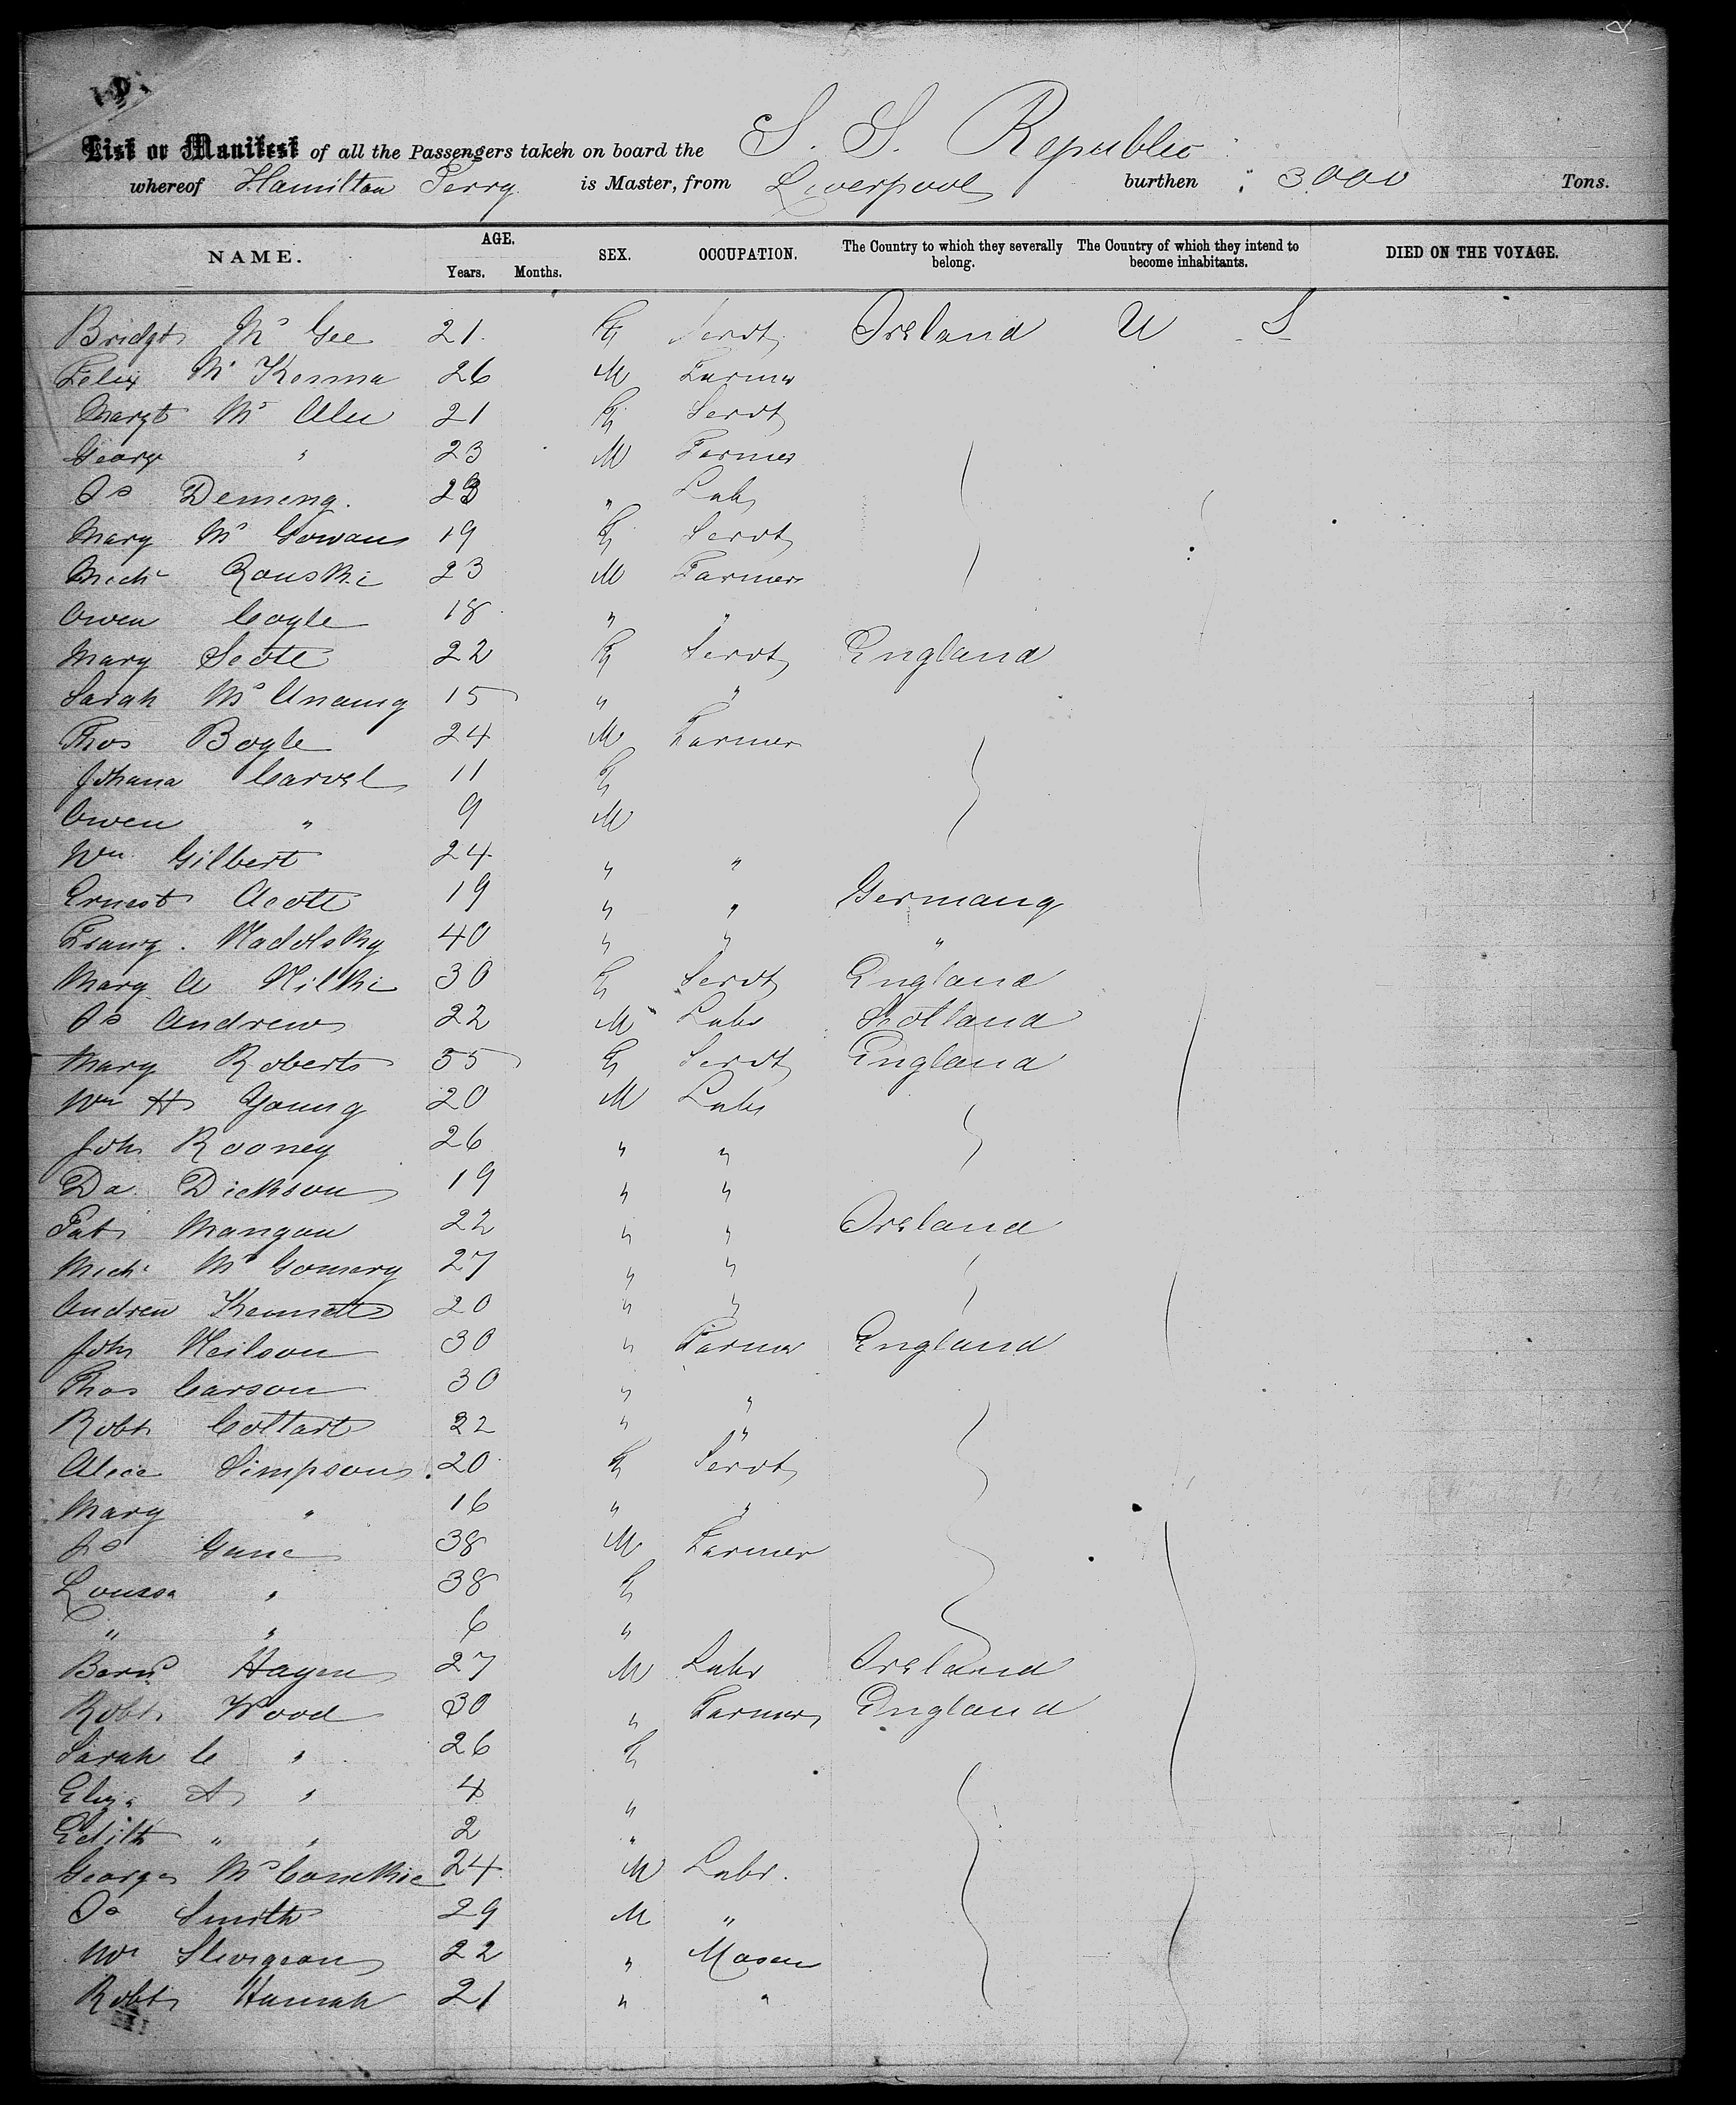 List or Manifest of all the Passengers taken on board the S. S. Republic
whereof Hamilton Perry is Master, from Liverpool burthen 3000 Tons.
NAME. AGE. Years. Months. SEX. OCCUPATION. The Country to which they severally belong. The Country of which they intend to become inhabitants. DIED ON THE VOYAGE.
Bridgt Mc Gee 21 F Servt Ireland U S
Felix Mc Kenna 26 M Farmer
Margt Mc 21 F Servt
George " 23 M Farmer
Js Deming 23 " Lab
Mary Mc Gowan 19 F Servt
Michl 23 M Farmer
Owen Coyle 18 " "
Mary Scott 22 F Servt England
Sarah Mc 15 " "
Thos Boyle 24 M Farmer
Johana Carvel 11 F
Owen " 9 M
Wm Gilbert 24 " "
Ernest 19 " " Germany
Nadolsky 40 " " "
Mary A 30 F Servt England
Js Andrew 22 M Labr Scotland
Mary Roberts 55 F Servt England
Wm H Young 20 M Labr
John Rooney 26 " "
Da Dickson 19 " "
Pat Mangan 22 " " Ireland
Michl Mc Gomery 27 " "
Andrew Kennett 20 " "
John Neilson 30 " Farmer England
Thos Carson 30 " "
Robt Coltart 22 " "
Alice Simpson 20 F Servt
Mary " 16 " "
Js Gunc 38 M Farmer
Louisa " 38 F
" " 6 "
Bernd Hagen 27 M Labr Ireland
Robt Wood 30 " Farmer England
Sarah C " 26 F
Eliza A " 4 "
Edith " " 2 "
George Mc Conchie 24 M Labr.
Js Smith 29 M "
Wm Sturgeon 22 " Mason
Robt Hannah 21 " "